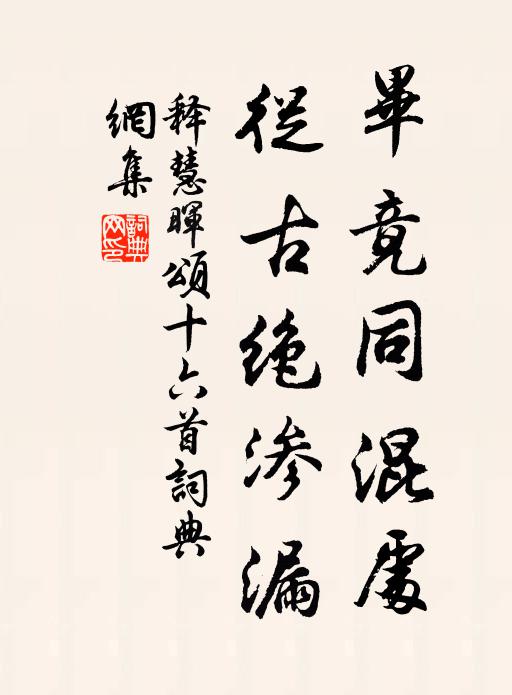 畢竟同混處
從古絶渗漏
释慧暉頌十六首詞典
網集
詞典網印